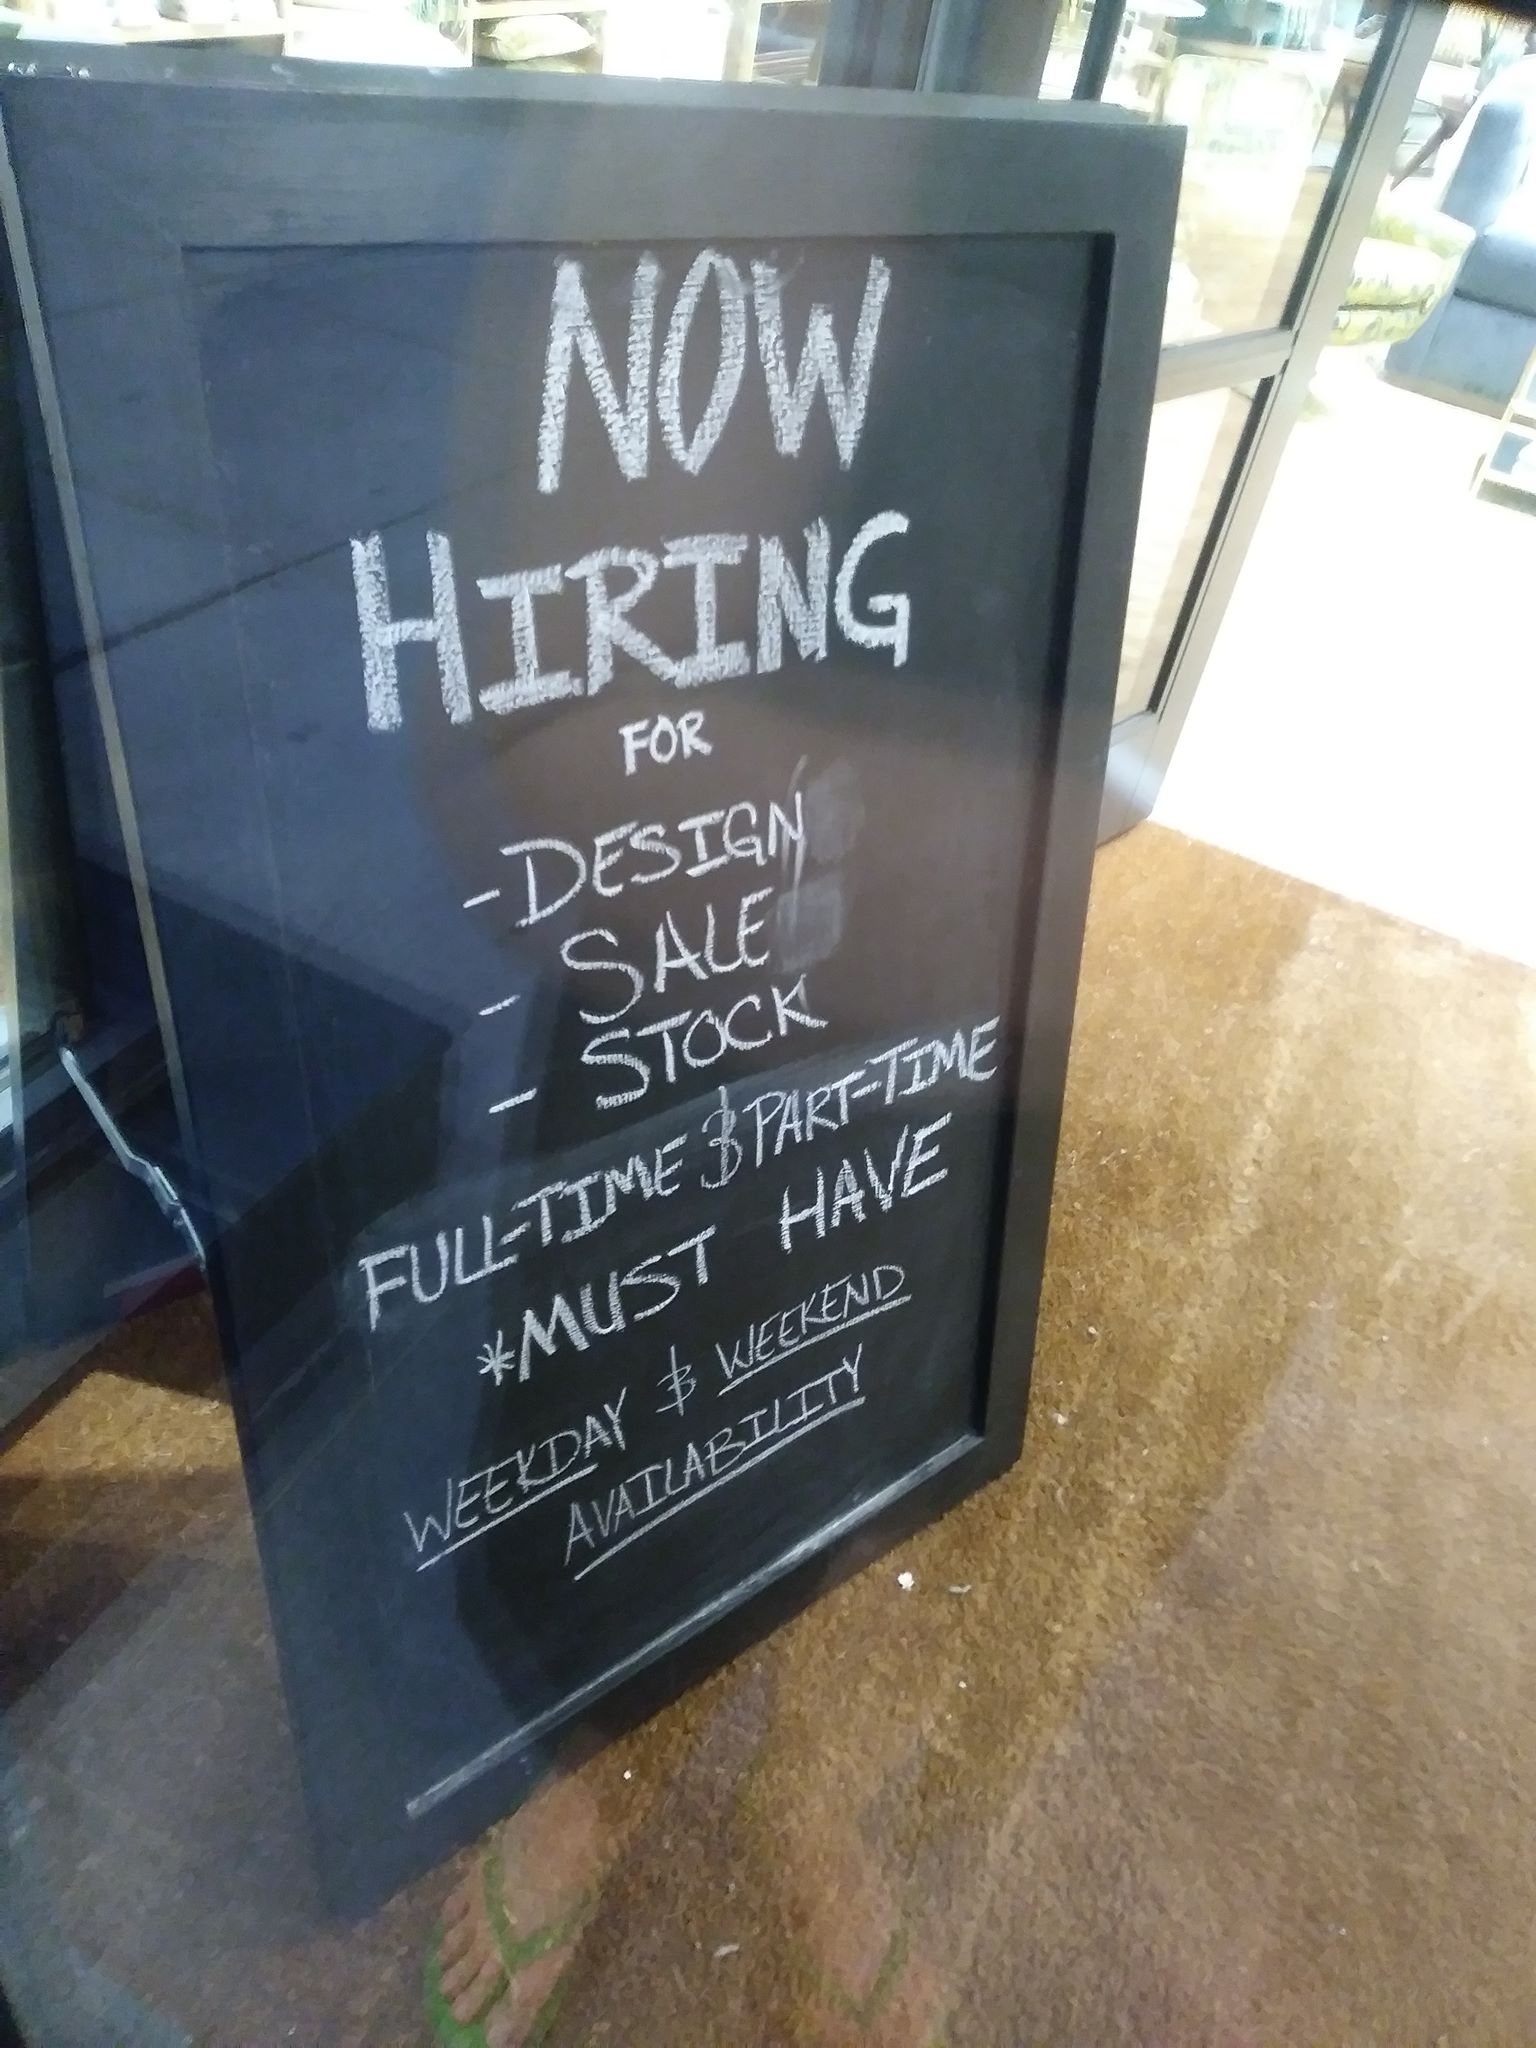 NOW
HIRING
FOR
- DESIGN
- SALE
- STOCK
FULL-TIME & PART-TIME
*MUST HAVE
WEEKDAY & WEEKEND
AVAILABILITY